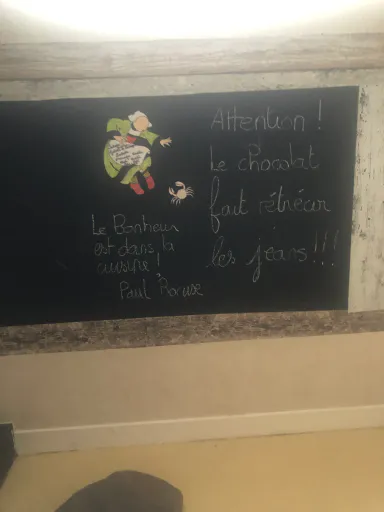 Attention !
Le chocolat
fait rétrécir
les jeans !!!
Le Bonheur
est dans la
cuisine !
Paul Bocuse